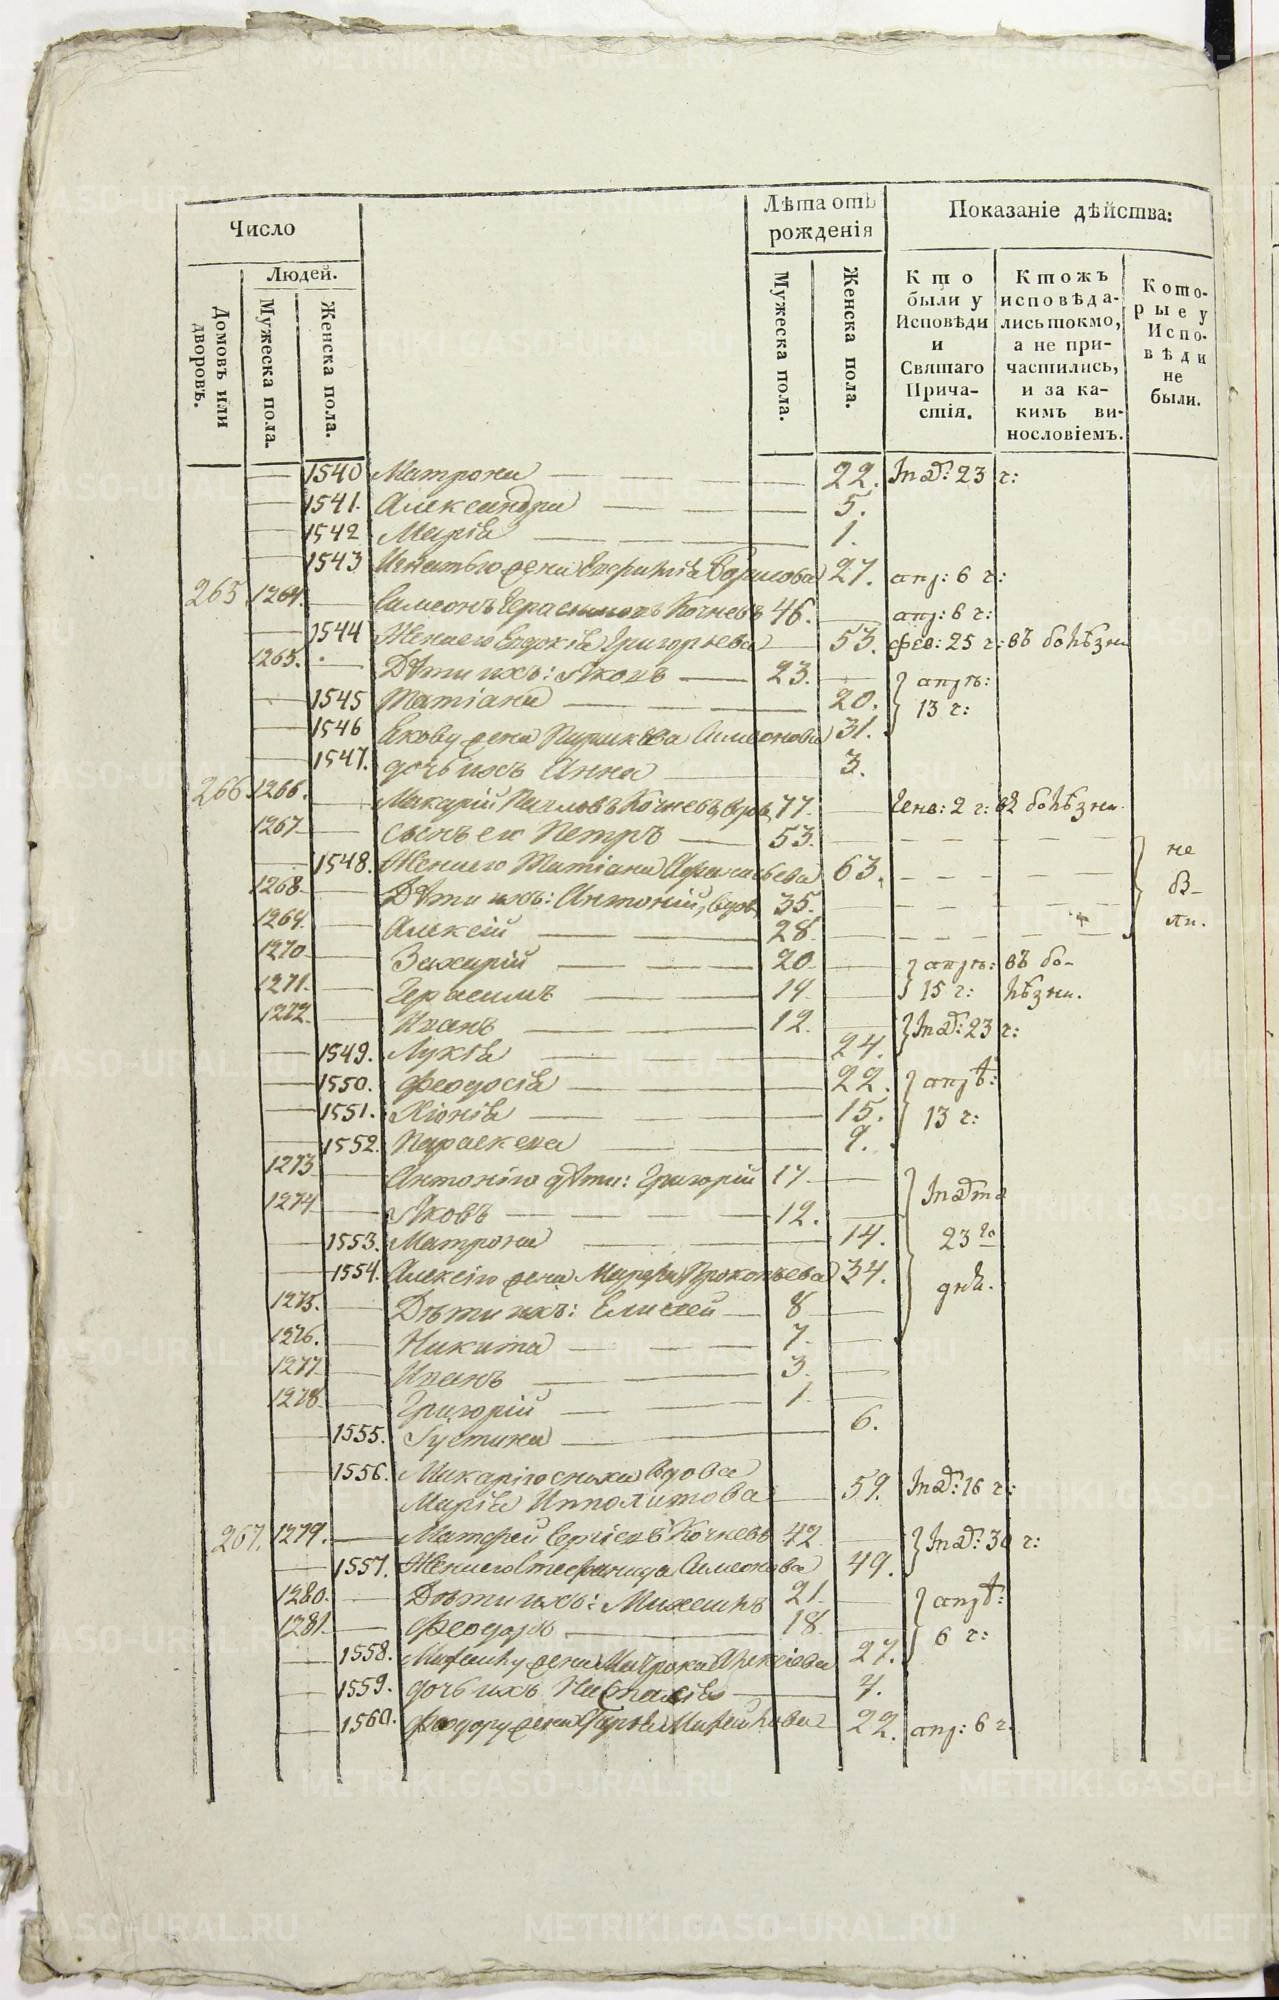 Число
Людей.
Домовъ или дворовъ.
Мужеска пола.
Женска пола.
Лѣта отъ рожденія
Мужеска пола.
Женска пола.
Показаніе дѣйства:
Кто были у Исповѣди и Святаго Причастія.
Ктожъ исповѣдались токмо, а не причастились, и за какимъ винословіемъ.
Которые у Исповѣди не были.
— 1540 Матрона — — — — 22. 23 г:
— 1541. Александра — — — 5.
— 1542 Марія — — — — 1.
— 1543 Игнатью жена Борисова 27. апр: 6 г:
265 1264. — Симеонъ Герасимовъ Кочневъ 46. — апр: 6 г:
— 1544 Жена его Евдокія Григорьева — 53. фев: 25 г: въ болѣзни
1265. — Дѣти ихъ: Яковъ — 23. — апрѣ:
— 1545 Татіана — — — 20. 13 г:
— 1546 Якову жена Симеонова 31.
— 1547. дочь ихъ Анна — 3.
266. 1266. — Макарій Кочневъ, вдовъ 77. — Генв: 2 г: въ болѣзни.
1267 — сынъ ея Петръ — 53. — — — — не
— 1548. Жена его Татіана Афанасьева 63. — — — —
1268 — Дѣти ихъ: Антоній, вдов. 35. — — — — бы-
1269. — Алексій — — 28. — — — — ли.
1270 — Захарій — — 20 — апрѣ: въ бо-
1271. — Герасимъ — — 14 — 15 г: лѣзни.
1272. — Иванъ — — 12. — 23 г:
— 1549. Лукія — — — 24.
— 1550. Феодосія — — — 22. апрѣ:
— 1551. Хіонія — — — 15. 13 г:
— 1552. Параскева — — 9.
1273 — Антонію дѣти: Григорій 17 —
1274 — Яковъ — — — 12. —
— 1553. Матрона — — 14. 23 го
— 1554. Алексію жена Марфа Прокопьева 34. дня.
1275. — Дѣти ихъ: Елисей — 8 —
1276. — Никита — — 7. —
1277 — Иванъ — — 3. —
1278. — Григорій — — 1. —
— 1555. Густина — 6.
— 1556. Макарію сноха вдова
Марія Ипполитова — 59. 16 г:
267. 1279. — Матфей Сергіевъ Кочневъ 42 — 30 г:
— 1557. Жена его Стефанида Симеонова 49.
1280. — Дѣти ихъ: 21. — апрѣ:
1281. — Феодоръ — 18 — 6 г:
— 1558. жена Матрона Алексіева 27.
— 1559. дочь ихъ — 7.
— 1560. Феодору жена 22. апр: 6 г.
METRIKI.GASO-URAL.RU